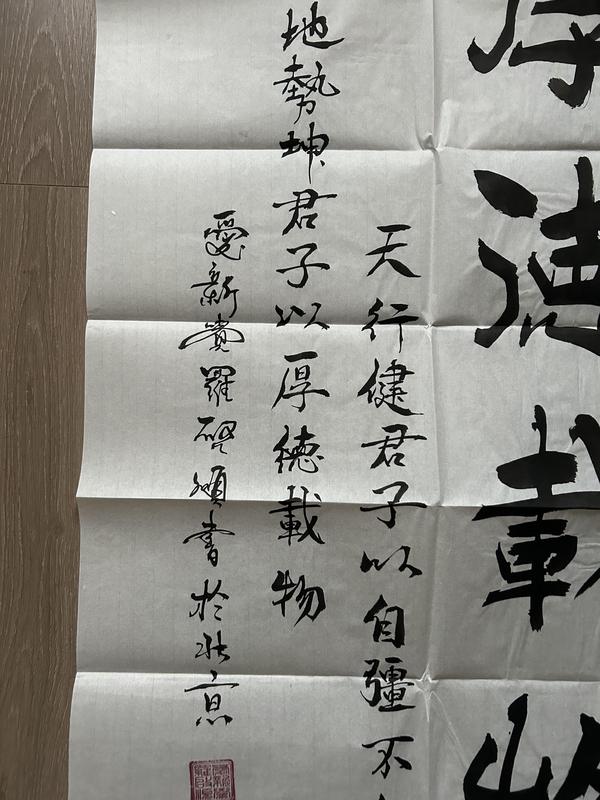 厚德載物
天行健君子以自彊不
地勢坤君子以厚德載物
愛新覺羅啓順書於北京